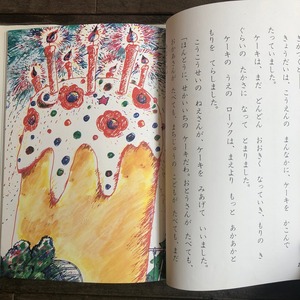 きょうだいは、こうえんの まんなかに、ケーキを かこんで
たっていました。
ケーキは、まだ どんどん おおきく なっていき、もりの き
ぐらいの たかさに なって とまりました。
ケーキの うえの ローソクは、まえより もっと あかあかと
もりを てらしました。
こうこうせいの ねえさんが、ケーキを みあげて いいました。
「ほんとうに、せかいいちの ケーキだわ。おとうさんが たべても、
おかあさんが たべても、まちじゅうの こどもが たべても、まだ